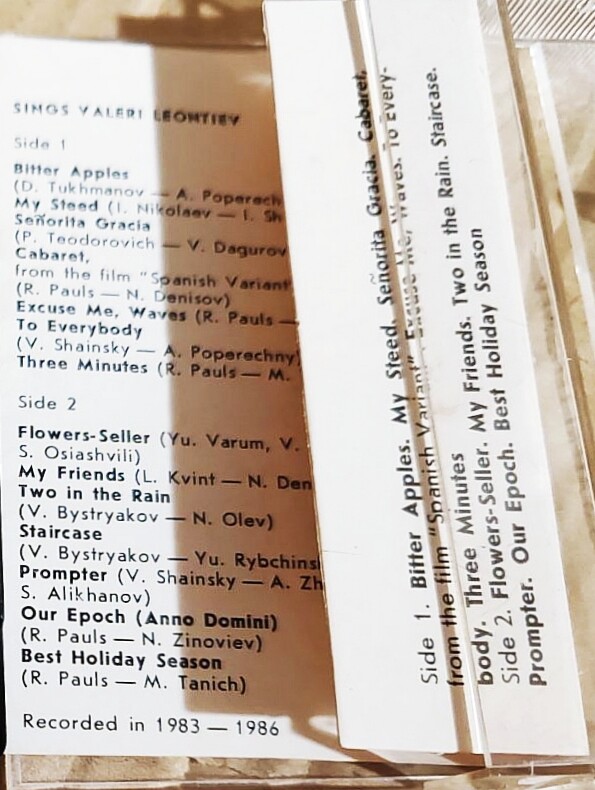 SINGS VALERI LEONTIEV
Side 1
Bitter Apples
(D. Tukhmanov — A. Poperech
My Steed (I. Nikolaev — I. Sh
Señorita Gracia
(P. Teodorovich — V. Dagurov
Cabaret,
from the film "Spanish Variant"
(R. Pauls — N. Denisov)
Excuse Me, Waves (R. Pauls —
To Everybody
(V. Shainsky — A. Poperechny)
Three Minutes (R. Pauls — M.
Side 2
Flowers-Seller (Yu. Varum, V.
S. Osiashvili)
My Friends (L. Kvint — N. Den
Two in the Rain
(V. Bystryakov — N. Olev)
Staircase
(V. Bystryakov — Yu. Rybchins
Prompter (V. Shainsky — A. Zh
S. Alikhanov)
Our Epoch (Anno Domini)
(R. Pauls — N. Zinoviev)
Best Holiday Season
(R. Pauls — M. Tanich)
Recorded in 1983 — 1986
Side 1. Bitter Apples. My Steed. Señorita Gracia. Cabaret,
from the film "Spanish Variant". Excuse Me, Waves. To Every-
body. Three Minutes
Side 2. Flowers-Seller. My Friends. Two in the Rain. Staircase.
Prompter. Our Epoch. Best Holiday Season